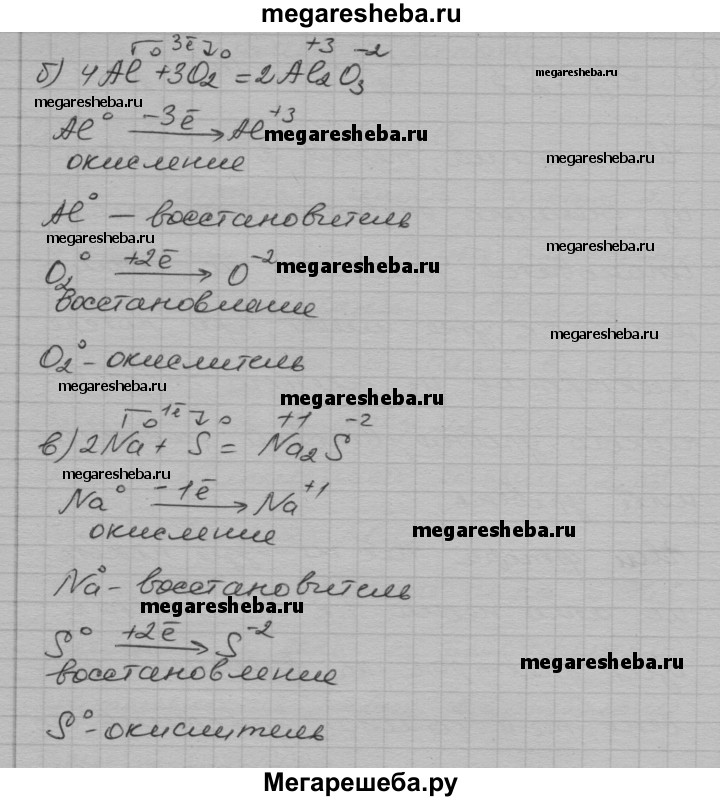 megaresheba.ru
0 3ē 0 +3 -2
б) 4Al + 3O₂ = 2Al₂O₃
megaresheba.ru
megaresheba.ru
Al⁰ -3ē → Al⁺³
megaresheba.ru
окисление
megaresheba.ru
Al⁰ — восстановитель
megaresheba.ru
megaresheba.ru
O₂⁰ +2ē → O⁻²
megaresheba.ru
восстановление
megaresheba.ru
O₂⁰ - окислитель
megaresheba.ru
megaresheba.ru
0 1ē 0 +1 -2
в) 2Na + S = Na₂S
megaresheba.ru
Na⁰ -1ē → Na⁺¹
окисление
megaresheba.ru
Na⁰ - восстановитель
megaresheba.ru
S⁰ +2ē → S⁻²
megaresheba.ru
восстановление
S⁰ - окислитель
Мегарешеба.ру